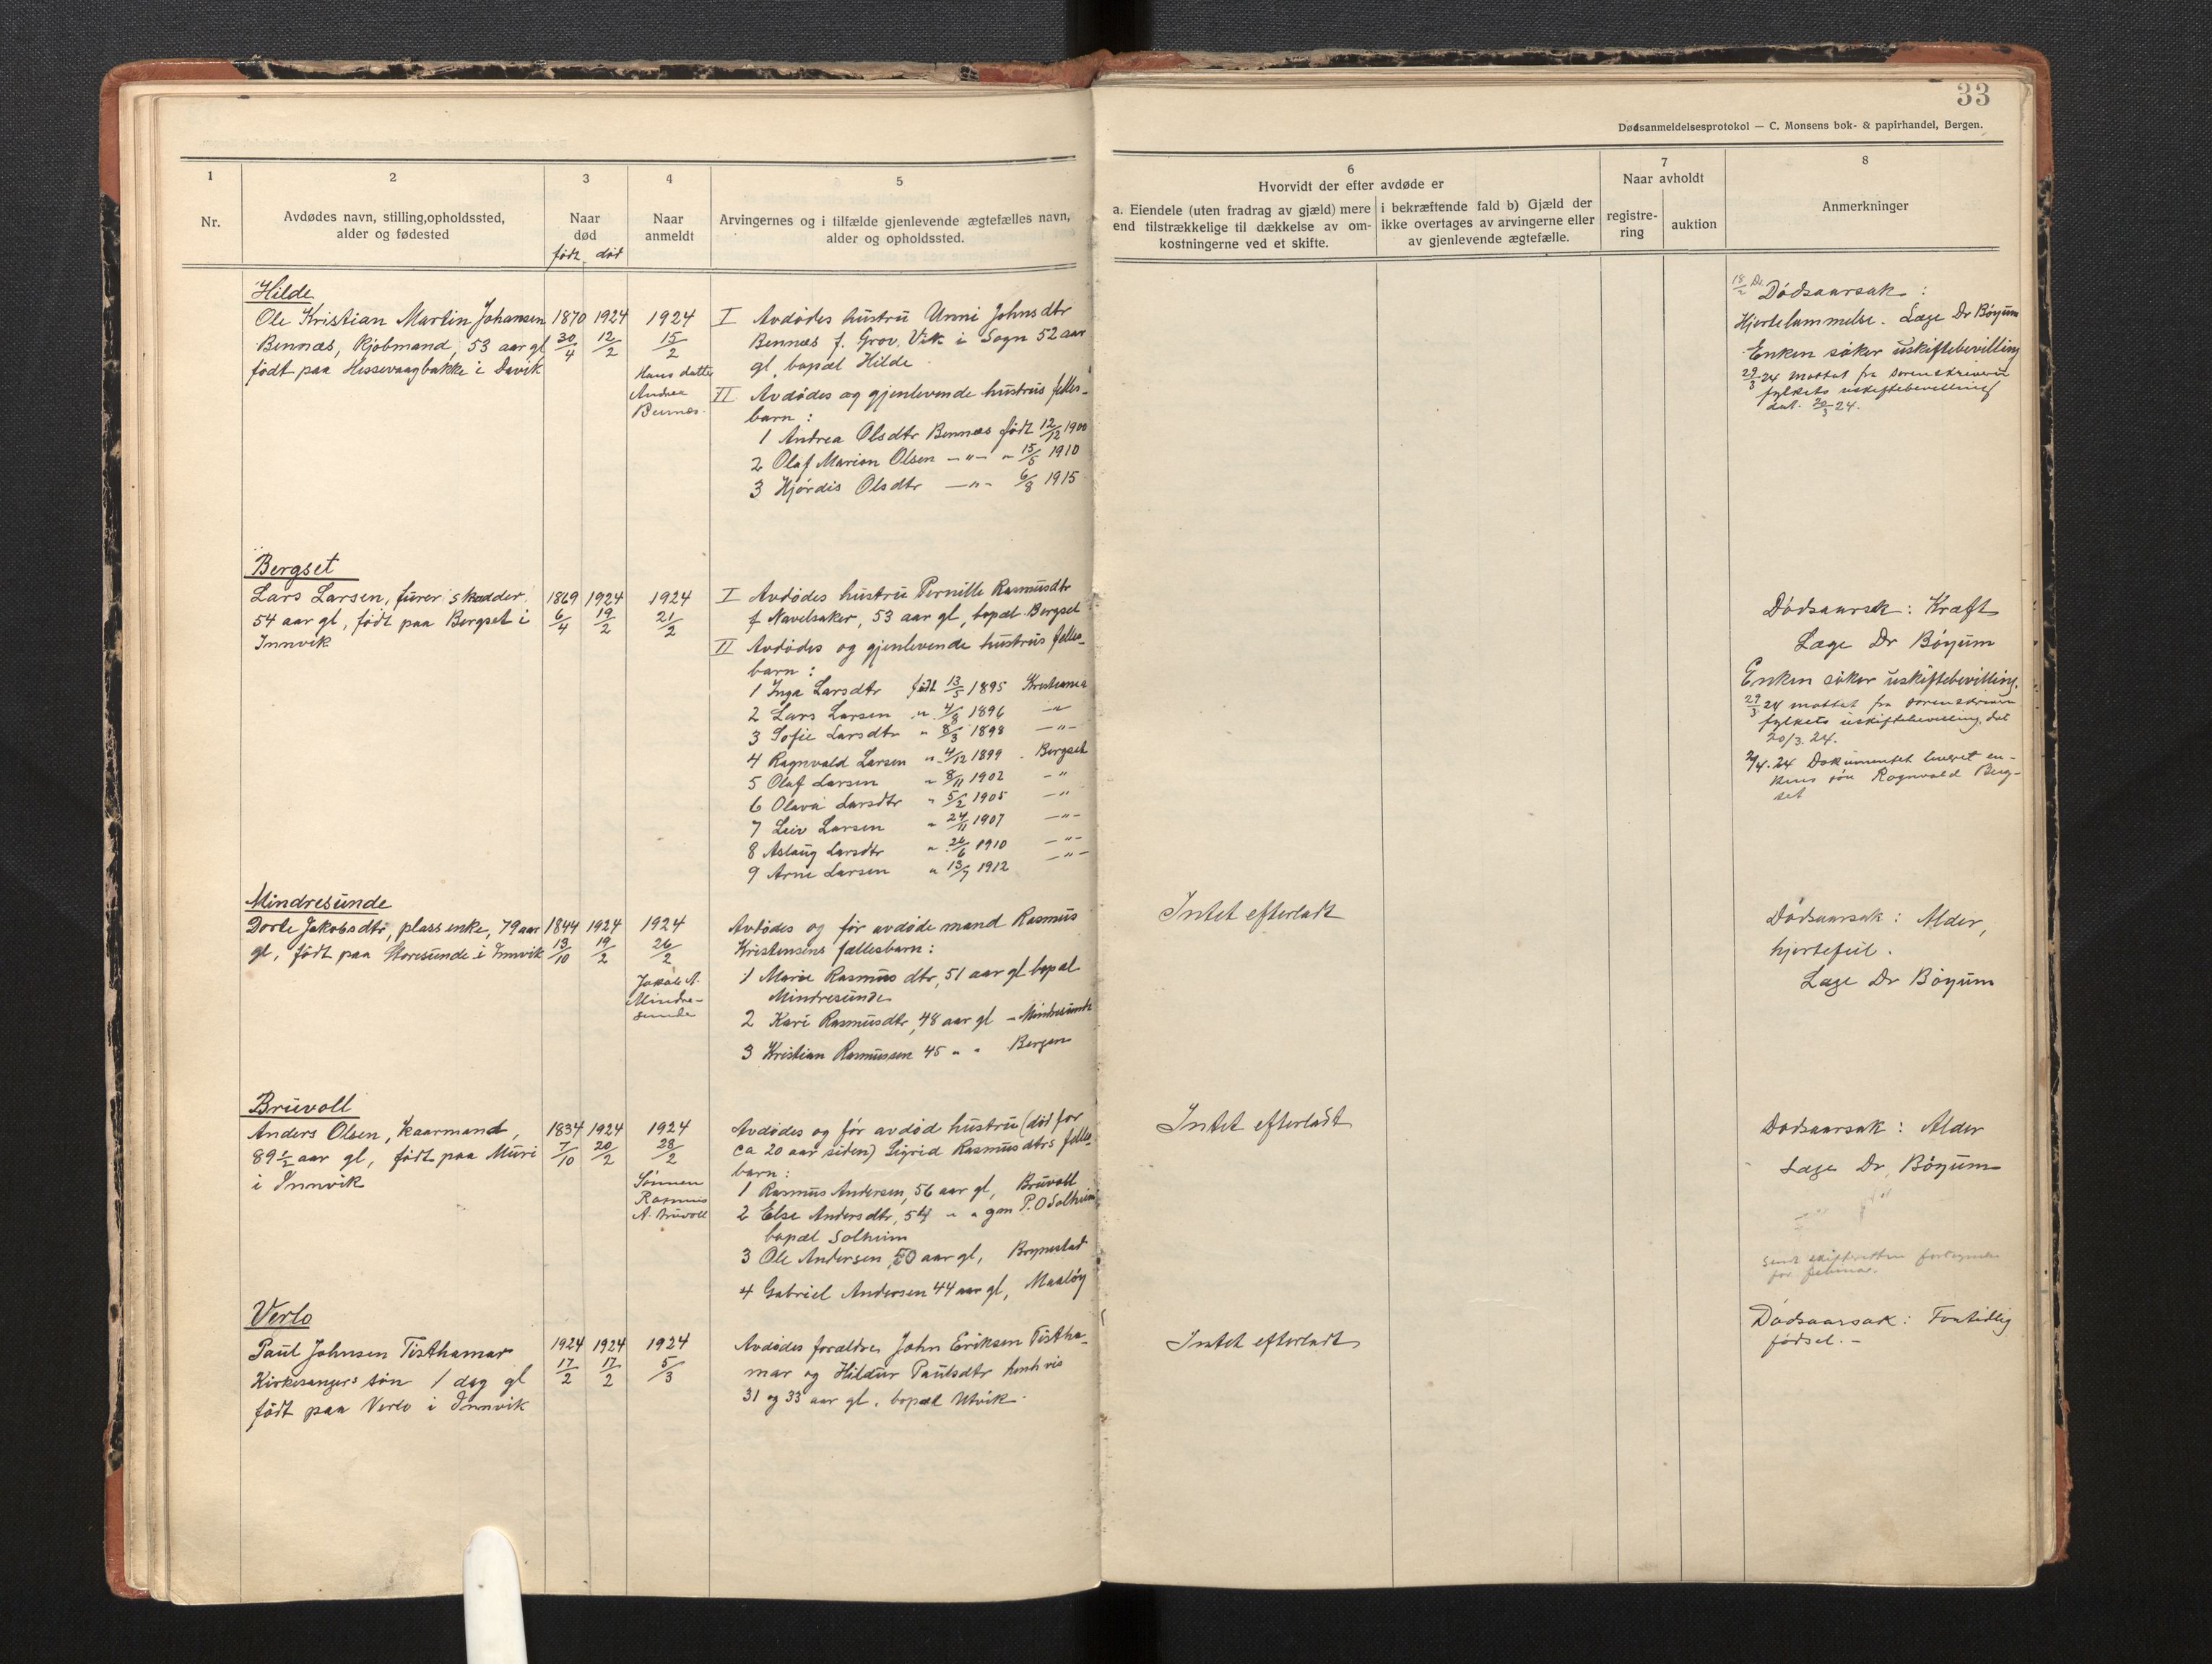 33
Dødsanmeldelsesprotokol — C. Monsens bok- & papirhandel, Bergen.
1
Nr.
2
Avdødes navn, stilling, opholdssted,
alder og fødested
3
Naar
død
født død
4
Naar
anmeldt
5
Arvingernes og i tilfælde gjenlevende ægtefælles navn,
alder og opholdssted.
6
Hvorvidt der efter avdøde er
a. Eiendele (uten fradrag av gjæld) mere
end tilstrækkelige til dækkelse av om-
kostningerne ved et skifte.
i bekræftende fald b) Gjæld der
ikke overtages av arvingerne eller
av gjenlevende ægtefælle.
7
Naar avholdt
registre-
ring
auktion
8
Anmerkninger
Hilde
Ole Kristian Martin Johansen
Bennæs, Kjøbmand, 53 aar gl
født paa Hessevaagbakke i Davik
1870 30/4
1924 12/2
1924
15/2
Hans datter
Andrea
Bennæs.
I Avdødes hustru Unni Johnsdtr
Bennæs f. Grov, Vik i Sogn 52 aar
gl, bopæl Hilde
II Avdødes og gjenlevende hustrus felles-
barn :
1 Andrea Olsdtr Bennæs født 12/12 1900
2 Olaf Marion Olsen —"— " 15/5 1910
3 Hjørdis Olsdtr —"— 6/8 1915
18/2 Dr.
Dødsaarsak :
Hjertelammelse. Læge Dr Bøyum
Enken søker uskiftebevilling
29/3 24 mottat fra sorenskriveren
fylkets uskiftebevilling
dat. 20/3 24.
Bergset
Lars Larsen, furer skrædder,
54 aar gl, født paa Bergset i
Innvik
1869 6/4
1924 19/2
1924
21/2
I Avdødes hustru Pernille Rasmusdtr
f Navelsaker, 53 aar gl, bopæl Bergset
II Avdødes og gjenlevende hustrus felles-
barn :
1 Inga Larsdtr født 13/5 1895 Kristiania
2 Lars Larsen " 4/8 1896 —"
3 Sofie Larsdtr " 8/3 1898 —"—
4 Ragnvald Larsen " 4/12 1899 . Bergset
5 Olaf Larsen " 8/11 1902 —"
6 Olava Larsdtr " 5/2 1905 —"
7 Leiv Larsen " 24/11 1907 —"—
8 Aslaug Larsdtr " 26/6 1910 —"—
9 Arne Larsen " 13/7 1912 —"—
Dødsaarsak : Kræft
Læge Dr Bøyum
Enken søker uskiftebevilling.
29/3 24 mottat fra sorenskriveren
fylkets uskiftebevilling, dat
20/3. 24.
2/4. 24 Dokumentet leveret en-
kens søn Ragnvald Berg-
set
Mindresunde
Dorte Jakobsdtr, plassenke, 79 aar
gl, født paa Storesunde i Innvik
1844 13/10
1924 19/2
1924
26/2
Jakob A.
Mindre-
sunde
Avdødes og før avdøde mand Rasmus
Kristensens fællesbarn :
1 Marie Rasmus dtr, 51 aar gl bopæl
Mindresunde
2 Kari Rasmusdtr, 48 aar gl - Mindresunde
3 Kristian Rasmussen 45 " " Bergen
Intet efterladt
Dødsaarsak : Alder,
hjertefeil.
Læge Dr Bøyum
Bruvoll
Anders Olsen, kaarmand,
89½ aar gl, født paa Muri
i Innvik
1834 7/10
1924 20/2
1924
28/2
Sønnen
Rasmus
A. Bruvoll
Avdødes og før avdød hustru (død for
ca 20 aar siden) Sigrid Rasmusdtrs felles-
barn :
1 Rasmus Andersen, 56 aar gl, Bruvoll
2 Else Andersdtr, 54 " " gm P. O Solheim
bopæl Solheim
3 Ole Andersen, 50 aar gl, Brynestad
4 Gabriel Andersen 44 aar gl, Maaløy
Intet efterladt
Dødsaarsak : Alder
Læge Dr. Bøyum
Sendt skifteretten fortegnelse
for februar.
Verlo
Paul Johnsen Tisthamar
Kirkesangers søn 1 dag gl
født paa Verlo i Innvik
1924 17/2
1924 17/2
1924
5/3
Avdødes forældre, John Eriksen Tistha-
mar og Hildur Paulsdtr henh vis
31 og 33 aar gl. bopæl Utvik.
Intet efterladt
Dødsaarsak : For tidlig
fødsel. —